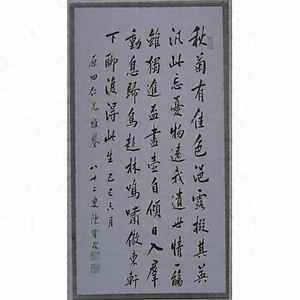 秋菊有佳色浥露掇其英
汎此忘憂物遠我遺世情一觴
雖獨進盃盡壺自傾日入羣
動息歸鳥趨林鳴嘯傲東軒
下聊復得此生 己巳六月
原田仁兄雅鑒 八十二叟陳